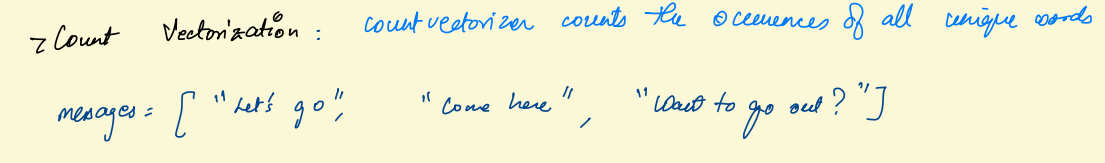 → Count Vectorization : countvectorizer counts the occurences of all unique words
messages = [ "Let's go", "Come here", "Want to go out?"]